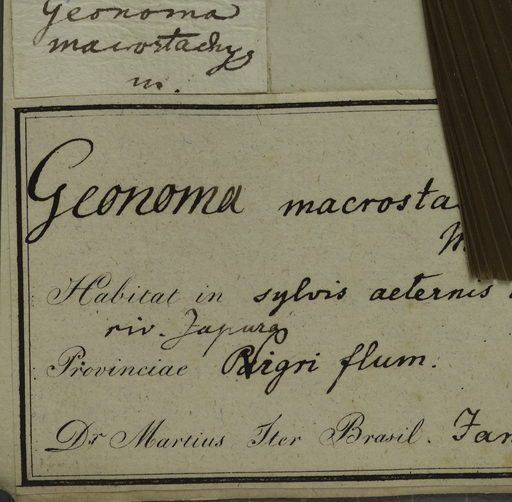 Geonoma
macrostachys
m.
Geonoma macrosta
M
Habitat in sylvis aeternis
riv. Japura
Provinciae Nigri flum.
Dr. Martius Iter Brasil. Jan